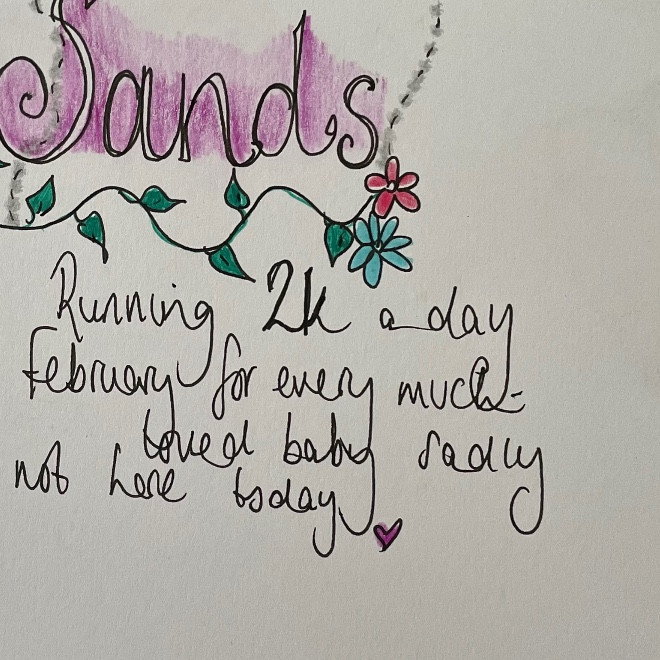 Sands
Running 2k a day
February for every much-
loved baby sadly
not here today